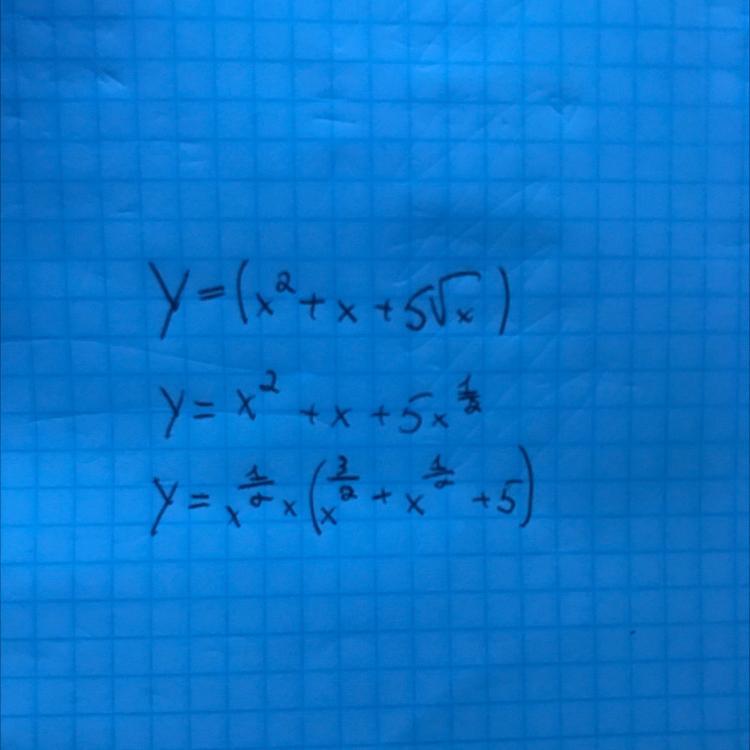 y = (x² + x + 5√x)
y = x² + x + 5x^(1/2)
y = x^(1/2) × (x^(3/2) + x^(1/2) + 5)